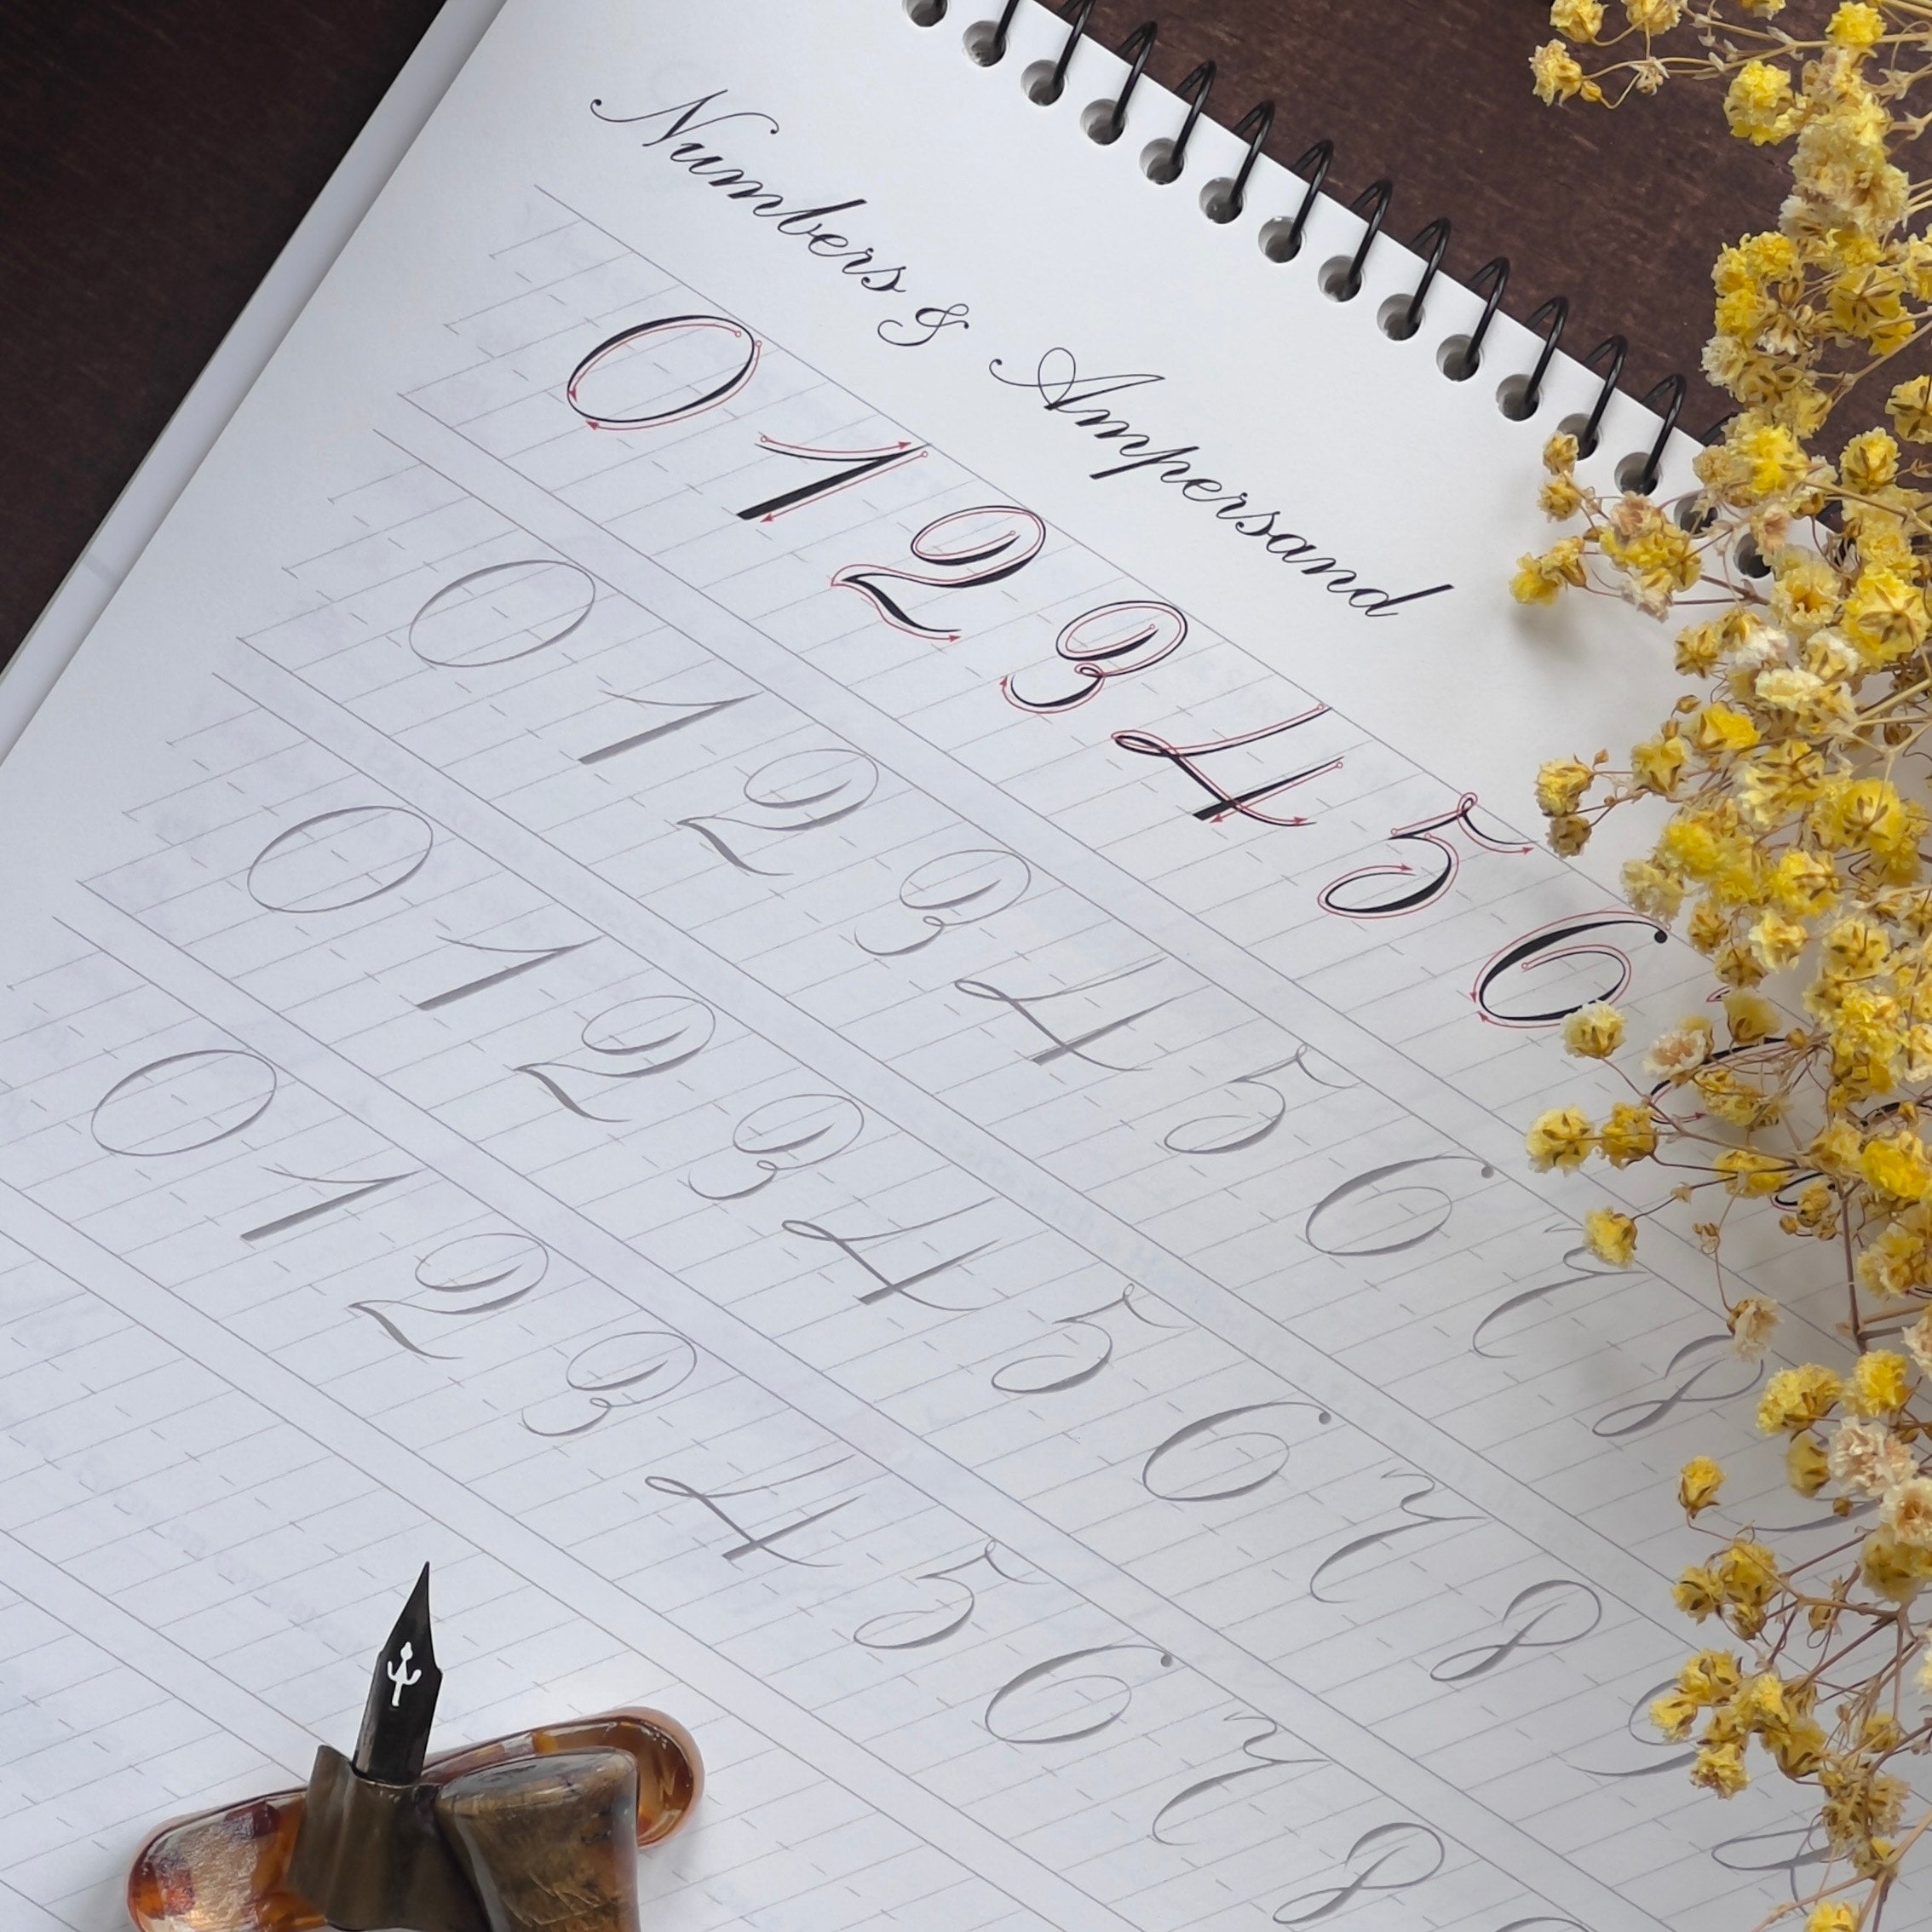 Numbers & Ampersand
0 1 2 3 4 5 6
0 1 2 3 4 5 6 7 8
0 1 2 3 4 5 6 7 8 9
0 1 2 3 4 5 6 7 8